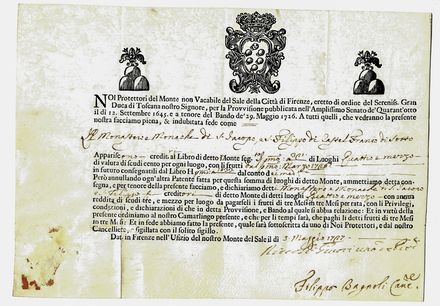 NOI Protettori del Monte non Vacabile del Sale della Città di Firenze, eretto di ordine del Sereniss. Gran
Duca di Toscana nostro Signore, per la Provvisione pubblicata nell'Amplissimo Senato de' Quarant'otto
il dì 12. Settembre 1645. e a tenore del Bando de' 29. Maggio 1726. A tutti quelli, che vedranno la presente
nostra facciamo piena, & indubitata fede come
Il Monasterio e Monache di S. Jacopo e Filippo di Castel Franco di Sotto
Appariscono creditri al Libro di detto Monte seg. di Luoghi Quattro e mezzo
di valuta di scudi cento per ogni luogo, con li frutti
in futuro consequindi dal Libro H dal conto di
Però annullando ogn'altra Patente fatta per questa somma di luoghi di detto Monte, ammettiamo detta con-
segna, e per tenore della presente facciamo, e dichiariamo detti Monasterio e Monache di S. Jacopo
e Filippo creditri di detto Monte di detti luoghi Quattro e mezzo con annua
rendita di scudi tre, e mezzo per luogo da pagarsi i frutti di tre Mesi in tre Mesi per rata, con li Privilegj,
condizioni, e dichiarazioni di che in detta Provvisione, e Bando, al quale si abbia relazione: Et in virtù della
presente ordiniamo al nostro Camarlingo presente, e che per li tempi sarà, che paghi li detti frutti di tre Mesi
in tre Mesi: Et in fede abbiamo fatto la presente, quale sarà sottoscritta da uno di noi Protettori, e dal nostro
Cancelliere, e sigillata con il solito sigillo.
Dat. in Firenze nell'Ufizio del nostro Monte del Sale il dì 3. Maggio 1787
Filippo Bagnoli Canc.